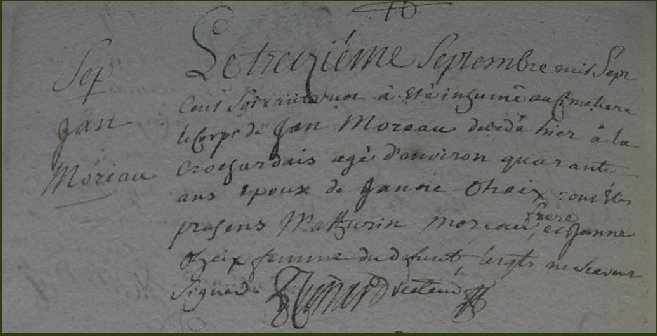 Sep
Jan
Moreau
Le treizième Septembre mil Sept
Cent Soixante à eté inhumé au Cimetiere
le Corps de Jan Moreau decedé hier à la
agé d'environ quarante
ans Epoux de ont étés
presens Mathurin Moreau frere et Janne
femme du defunt, lesqls ne Scavent
Signer
recteur